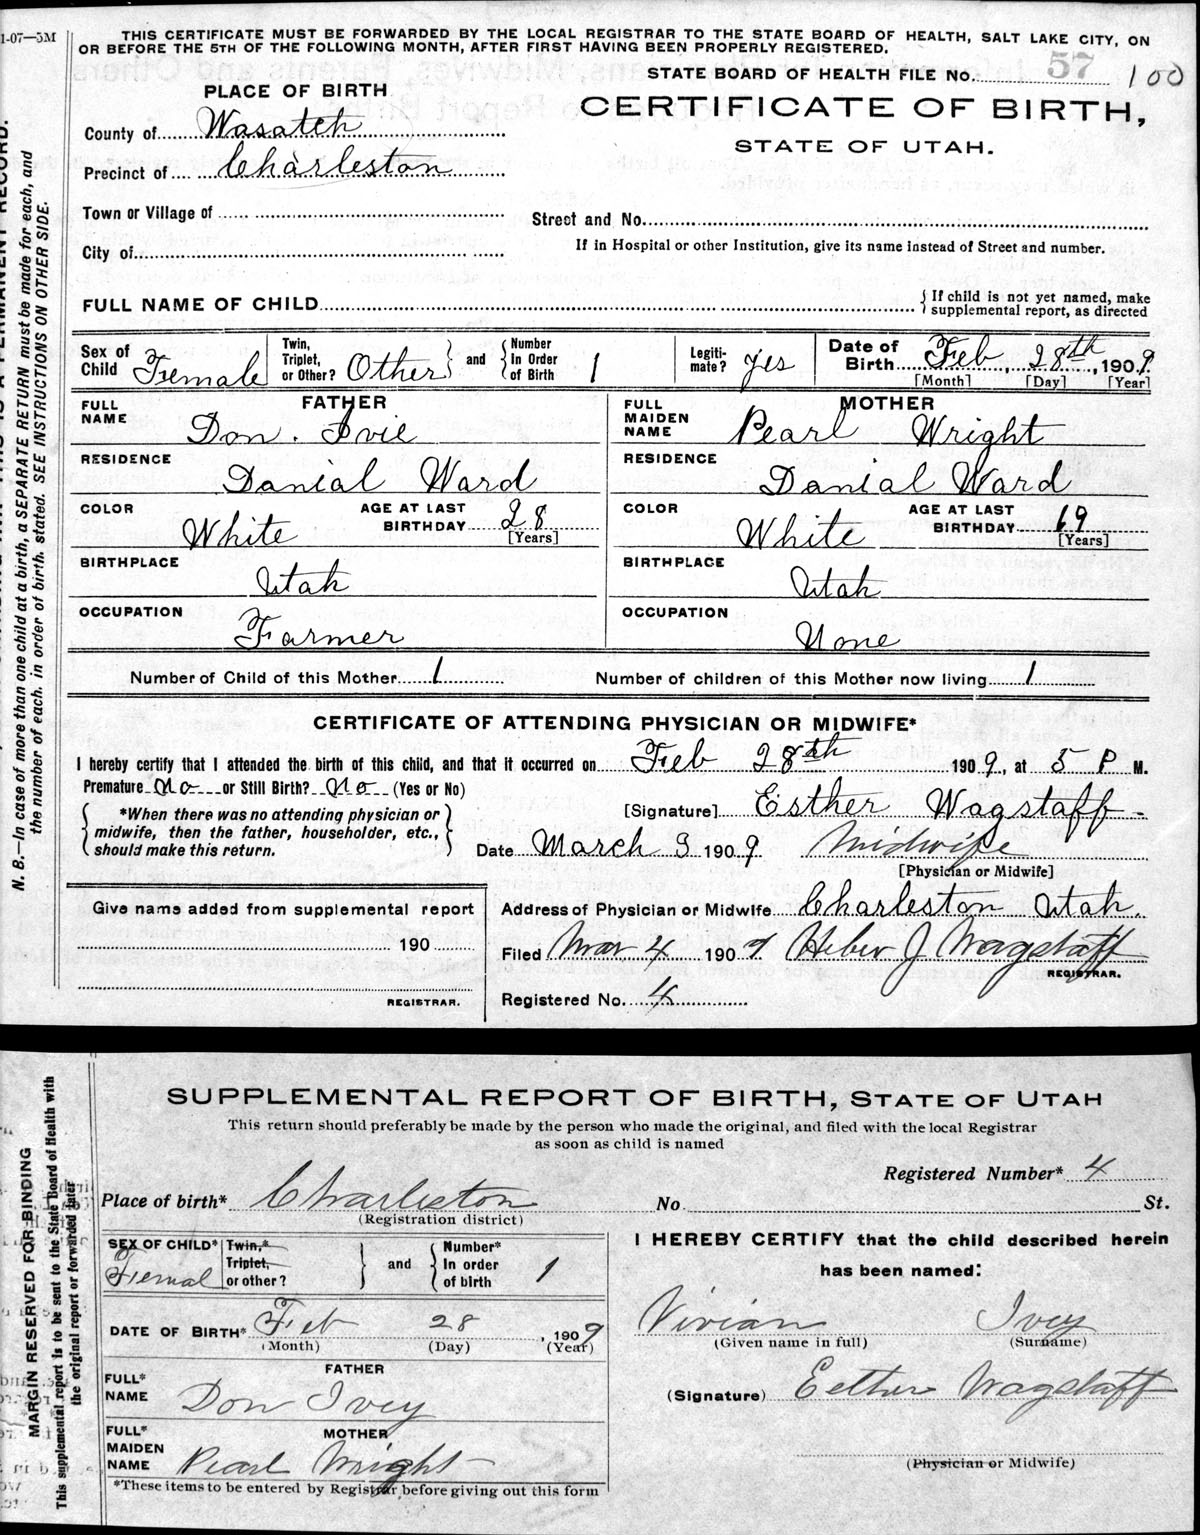 1-07—5M
THIS CERTIFICATE MUST BE FORWARDED BY THE LOCAL REGISTRAR TO THE STATE BOARD OF HEALTH, SALT LAKE CITY, ON
OR BEFORE THE 5TH OF THE FOLLOWING MONTH, AFTER FIRST HAVING BEEN PROPERLY REGISTERED.
STATE BOARD OF HEALTH FILE No. 57 100
PLACE OF BIRTH
CERTIFICATE OF BIRTH,
STATE OF UTAH.
County of Wasatch
Precinct of Charleston
Town or Village of
Street and No.
City of
If in Hospital or other Institution, give its name instead of Street and number.
FULL NAME OF CHILD
{ If child is not yet named, make
supplemental report, as directed
Sex of Child Female
Twin, Triplet, or Other? Other } and { Number In Order of Birth 1
Legiti-mate? yes
Date of Birth Feb, 28th, 1909
[Month] [Day] [Year]
FATHER
FULL NAME Don. Ivie
RESIDENCE Danial Ward
COLOR White AGE AT LAST BIRTHDAY 28 [Years]
BIRTHPLACE Utah
OCCUPATION Farmer
MOTHER
FULL MAIDEN NAME Pearl Wright
RESIDENCE Danial Ward
COLOR White AGE AT LAST BIRTHDAY 19 [Years]
BIRTHPLACE Utah
OCCUPATION None
Number of Child of this Mother 1 Number of children of this Mother now living 1
CERTIFICATE OF ATTENDING PHYSICIAN OR MIDWIFE*
I hereby certify that I attended the birth of this child, and that it occurred on Feb 28th 1909, at 5 P M.
Premature no or Still Birth? no (Yes or No)
{ *When there was no attending physician or
midwife, then the father, householder, etc.,
should make this return. }
[Signature] Esther Wagstaff
Date March 3 1909 Midwife
[Physician or Midwife]
Give name added from supplemental report
190
REGISTRAR.
Address of Physician or Midwife Charleston Utah.
Filed Mar 4 1909 Heber J Wagstaff
REGISTRAR.
Registered No. 4
N. B.—In case of more than one child at a birth, a SEPARATE RETURN must be made for each, and
the number of each, in order of birth, stated. SEE INSTRUCTIONS ON OTHER SIDE.
SUPPLEMENTAL REPORT OF BIRTH, STATE OF UTAH
This return should preferably be made by the person who made the original, and filed with the local Registrar
as soon as child is named
Registered Number* 4
Place of birth* Charleston No. St.
(Registration district)
SEX OF CHILD* Femal
Twin,* Triplet, or other? } and { Number* In order of birth 1
DATE OF BIRTH* Feb 28, 1909
(Month) (Day) (Year)
FATHER
FULL* NAME Don Ivey
MOTHER
FULL* MAIDEN NAME Pearl Wright
*These items to be entered by Registrar before giving out this form
I HEREBY CERTIFY that the child described herein
has been named:
Vivian Ivey
(Given name in full) (Surname)
(Signature) Esther Wagstaff
(Physician or Midwife)
MARGIN RESERVED FOR BINDING
This supplemental report is to be sent to the State Board of Health with
the original report or forwarded later